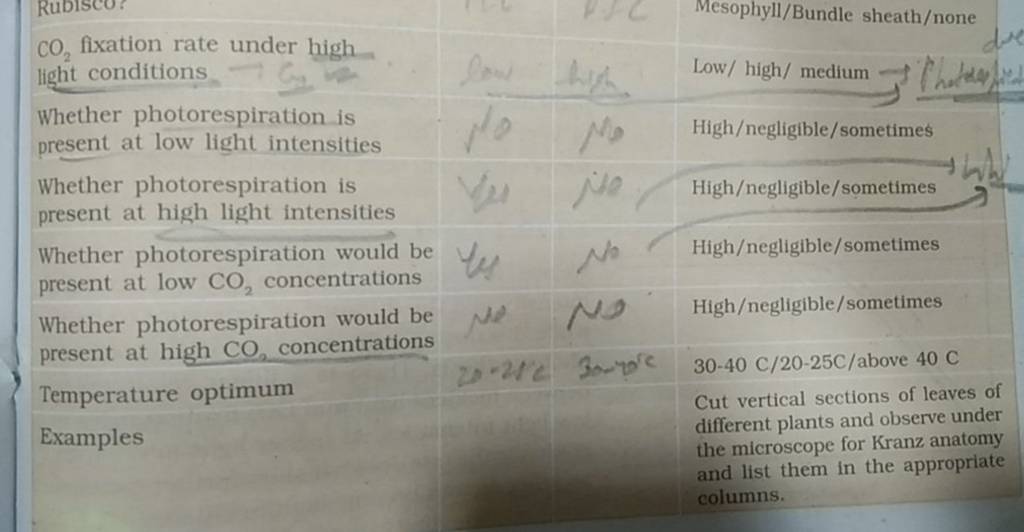 Rubisco?
Mesophyll/Bundle sheath/none
CO₂ fixation rate under high
light conditions
low
high
Low/ high/ medium
Whether photorespiration is
present at low light intensities
No
No
High/negligible/sometimes
Whether photorespiration is
present at high light intensities
Yes
No
High/negligible/sometimes
Whether photorespiration would be
present at low CO₂ concentrations
Yes
No
High/negligible/sometimes
Whether photorespiration would be
present at high CO₂ concentrations
No
No
High/negligible/sometimes
Temperature optimum
20-25°C
30-40°C
30-40 C/20-25C/above 40 C
Examples
Cut vertical sections of leaves of
different plants and observe under
the microscope for Kranz anatomy
and list them in the appropriate
columns.